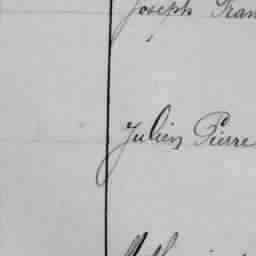 Joseph Fran
Julien Pierre